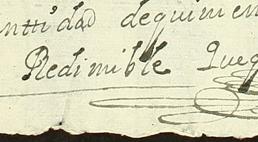 ntidad dequinien
Redimible Queg